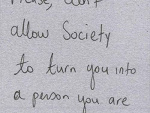 Please, don't
allow Society
to turn you into
a person you are